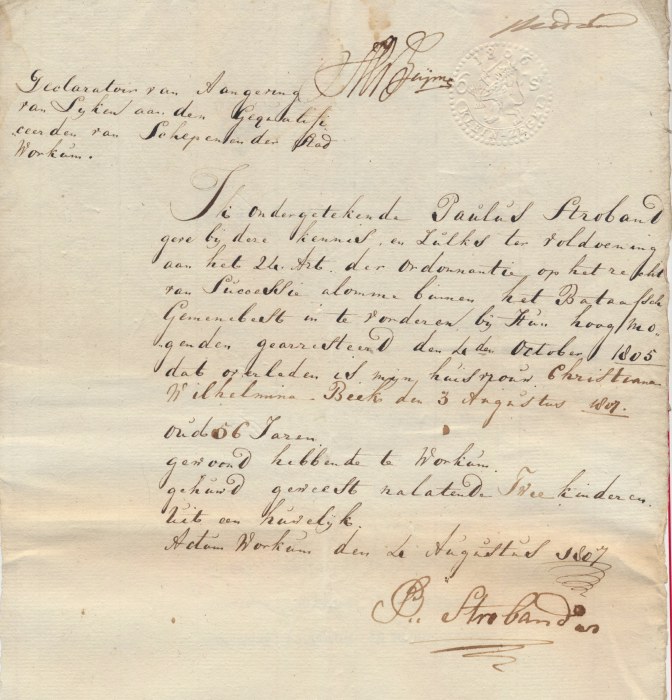 Declaratoir van Aangeving
van Lyken aan den Gequalifi
ceerden van Schepenen der Stad
Workum.
Ik ondergetekende Paulus Stroband
geve by deze kennis, en Zulks ter voldoening
aan het 24 Art. der Ordonnantie op het recht
van Successie alomme binnen het Bataafsch
Gemenebest in te vorderen by Hun hoog Mo-
genden gearresteerd den 4 den October 1805
dat overleden is mijn huisvrouw Christiana
Wilhelmina Beek den 3 Augustus 1807.
oud 56 Jaren.
gewoond hebbende te Workum.
gehuwd geweest nalatende Twee kinderen.
Uit een huwelyk.
Actum Workum den 4 Augustus 1807
P. Stroband